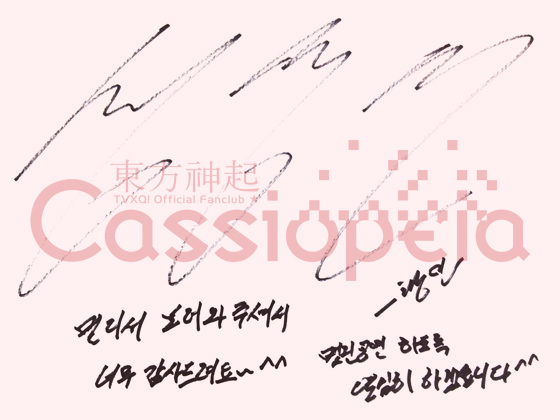 東方神起
TVXQ! Official Fanclub ★
Cassiopeia
주셔서
너무 감사드려요~ ^^
공연 하도록
열심히 하겠습니다 ^^